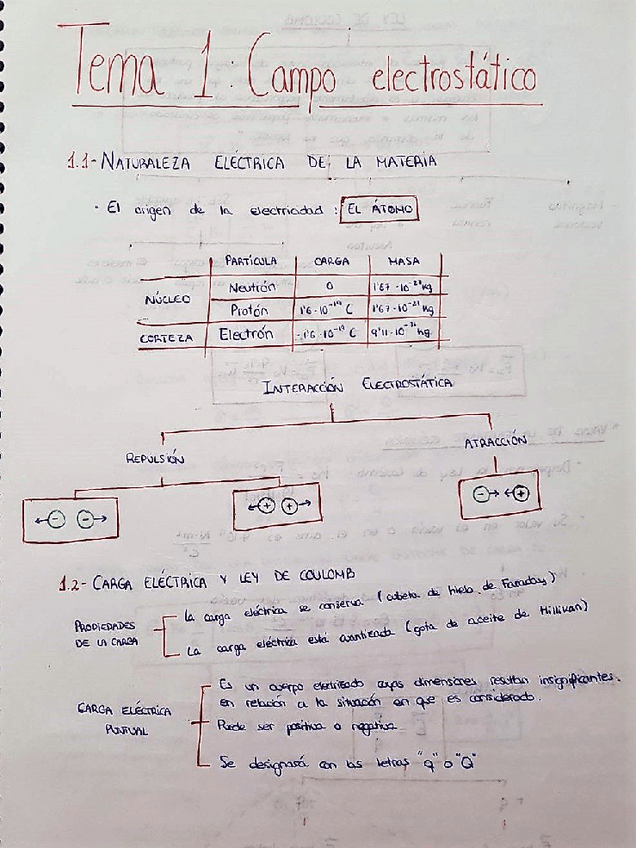 Tema 1: Campo electrostático
1.1- NATURALEZA ELÉCTRICA DE LA MATERIA
· El origen de la electricidad: EL ÁTOMO
PARTÍCULA CARGA MASA
NÚCLEO
Neutrón 0
Protón 1'6·10⁻¹⁹ C
CORTEZA Electrón -1'6·10⁻¹⁹ C 9'11·10⁻³¹ kg
INTERACCIÓN ELECTROSTÁTICA
REPULSIÓN
ATRACCIÓN
- - + + - +
1.2- CARGA ELÉCTRICA Y LEY DE COULOMB
PROPIEDADES DE LA CARGA
La carga eléctrica se conserva (cubeta de hielo de Faraday)
La carga eléctrica está cuantizada (gota de aceite de Millikan)
CARGA ELÉCTRICA PUNTUAL
Es un cuerpo electrizado cuyas dimensiones resultan insignificantes
en relación a la situación en que es considerado.
Puede ser positiva o negativa
Se designará con las letras "q" o "Q"